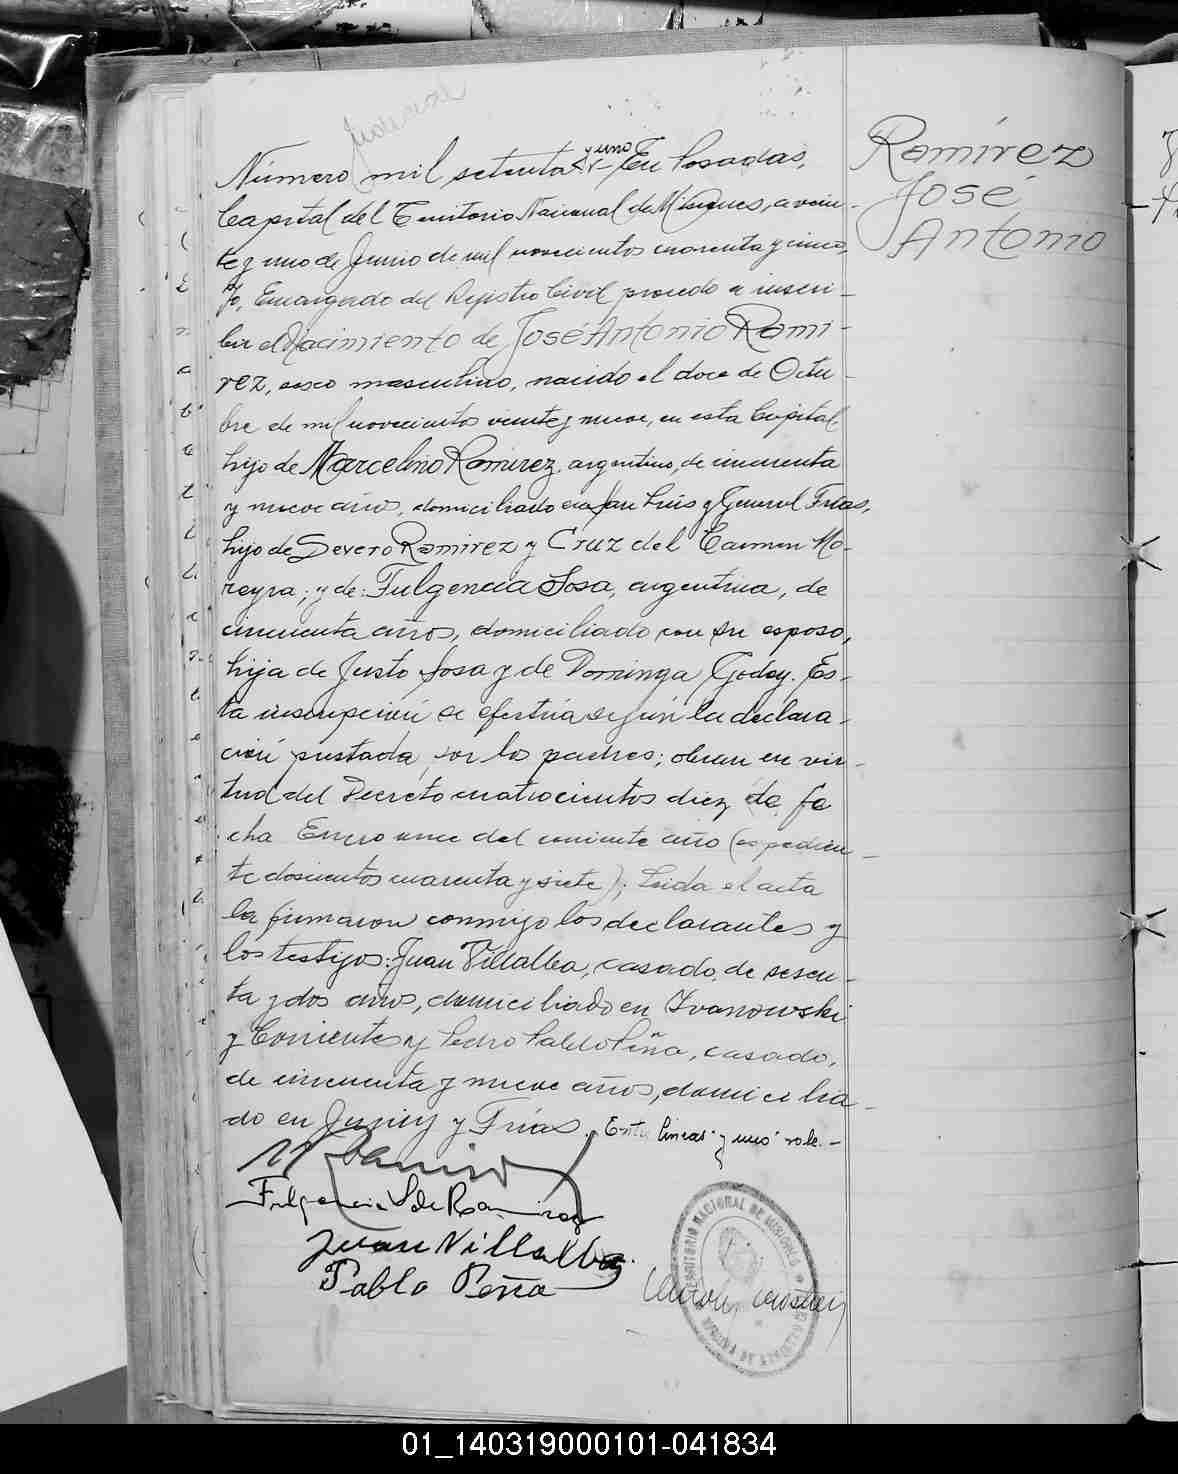 Judicial
Número mil setenta y uno - En Posadas,
Capital del Territorio Nacional de Misiones, a vein-
te y uno de Junio de mil novecientos cuarenta y cinco,
Yo, Encargado del Registro Civil procedo a inscri-
bir el Nacimiento de José Antonio Rami-
rez, sexo masculino, nacido el doce de Octu-
bre de mil novecientos veinte y nueve, en esta Capital
hijo de Marcelino Ramirez, argentino, de cincuenta
y nueve años, domiciliado en San Luis y General Frias,
hijo de Severo Ramirez y Cruz del Carmen Mo-
reyra; y de: Fulgencia Sosa, argentina, de
cincuenta años, domiciliado con su esposo,
hija de Justo Sosa y de Dominga Godoy. Es-
ta inscripción se efectúa según la declara-
ción prestada por los padres; obran en vir-
tud del Decreto cuatrocientos diez de fe
cha Enero once del corriente año (expedien-
te doscientos cuarenta y siete); Leida el acta
la firmaron conmigo los declarantes y
los testigos: Juan Villalba, casado, de sesen-
ta y dos años, domiciliado en Ivanowski
y Corrientes y Pedro Pablo Peña, casado,
de cincuenta y nueve años, domicilia-
do en Junin y Frias. Entre lineas "y uno" vale.-
M Ramirez
Fulgencia S de Ramirez
Juan Villalba.
Pablo Peña
TERRITORIO NACIONAL DE MISIONES
Ramírez
José
Antonio
01_140319000101-041834